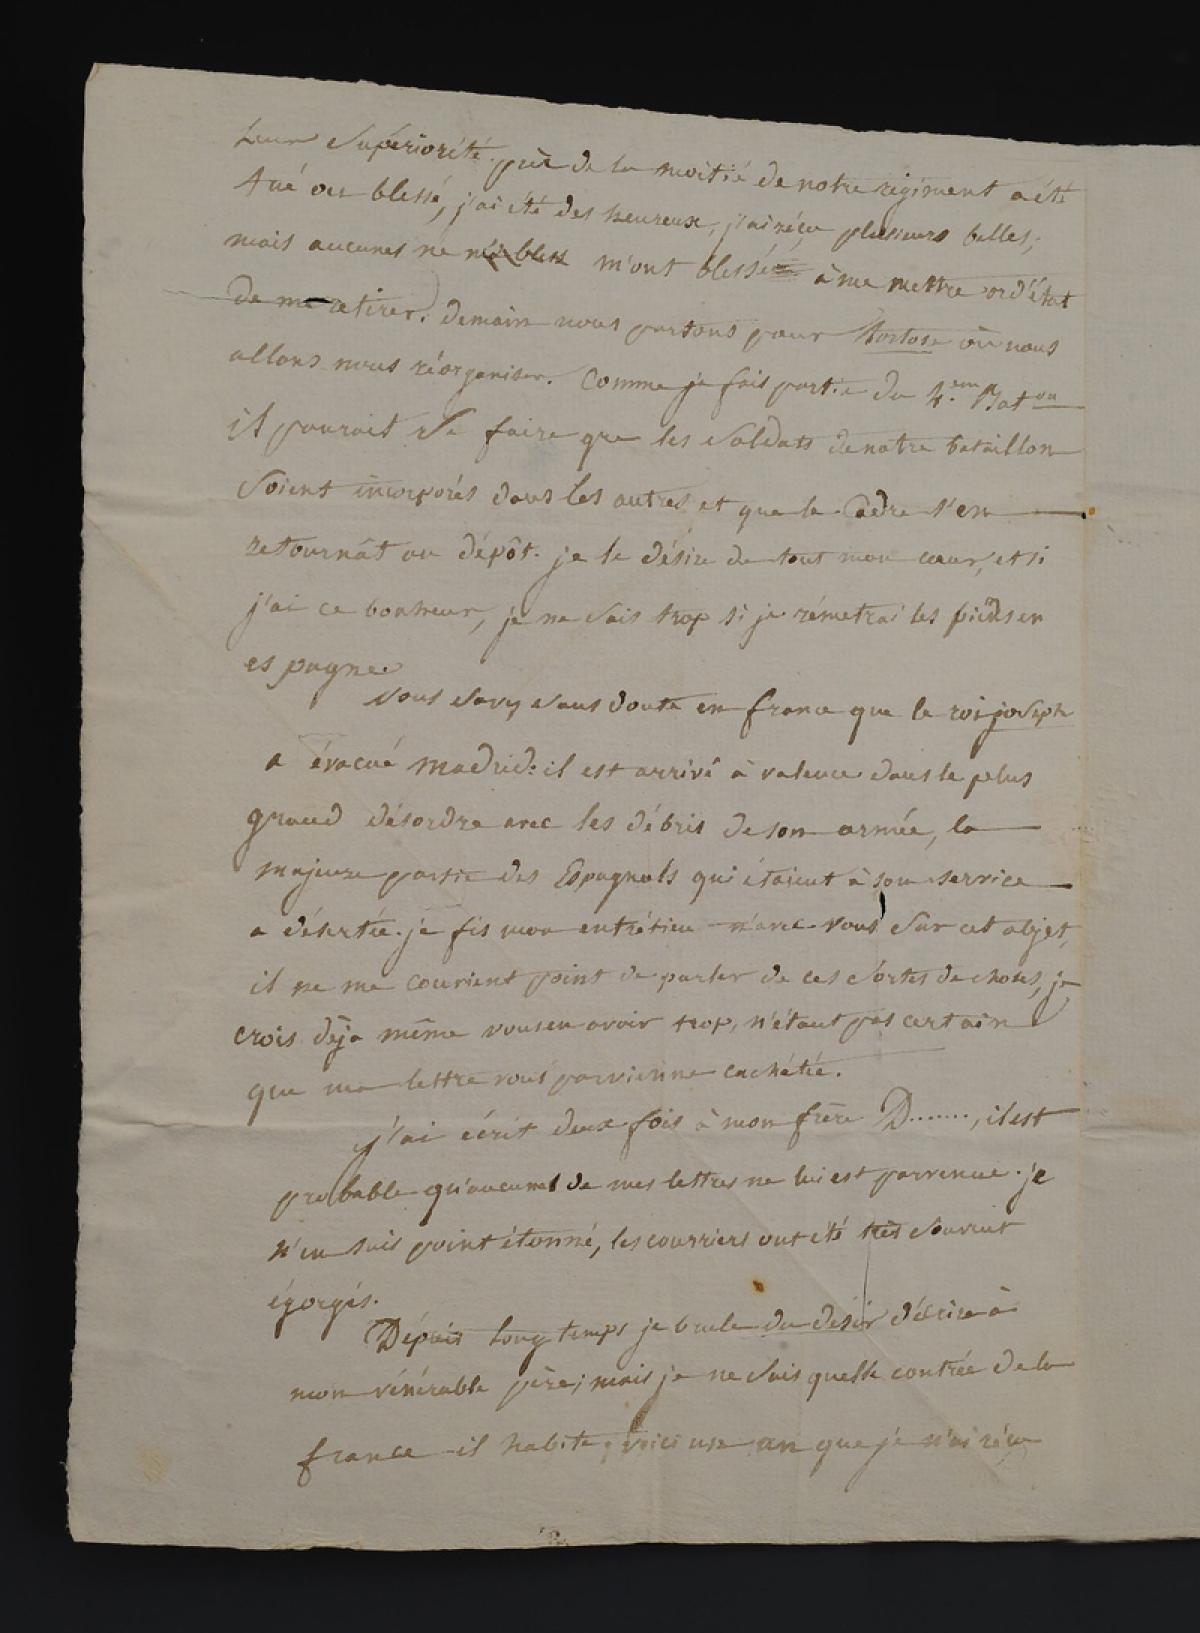 leur Supériorité. près de la moitié de notre régiment a été
tué ou blessé, j'ai été des heureux, j'ai réçu plusieurs balles;
mais aucunes ne m'ont blessé à me mettre ord'état
de me retirer. demain nous partons pour tortose où nous
allons nous réorganiser. Comme je fais partie du 4.em Baton
il pourait Se faire que les Soldats de notre bataillon
Soient incorporés dans les autres et que le Cadre s'en
retournât au dépôt. je le désire de tout mon cœur, et si
j'ai ce bonheur, je ne Sais trop si je rémetrai les pieds en
espagne.
Vous Savez Sans doute en france que le roi joseph
a évacué madrid: il est arrivé à valence dans le plus
grand désordre avec les débris de son armée, la
majeure partie des Espagnols qui étaient à son service
a désertée. je fis mon entrétien avec vous Sur cet objet,
il ne me convient point de parler de ces Sortes de choses, je
crois déja même vous en avoir trop, n'étant pas certain
que ma lettre vous parvienne cachétée.
j'ai écrit deux fois à mon frère D......., il est
probable qu'aucunes de mes lettres ne lui est parvenue. je
n'en suis point étonné, les courriers ont été très Souvent
égorgés.
Dépuis longtemps je brule du desir d'écrire à
mon vénérable père; mais je ne Sais quelle contrée de la
france il habite; voici un an que je n'ai réçu